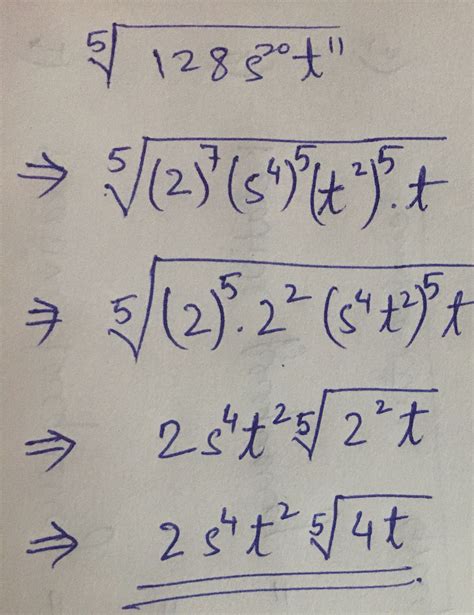 ⁵√(128 s²⁰ t¹¹)
⇒ ⁵√((2)⁷ (s⁴)⁵ (t²)⁵ · t)
⇒ ⁵√((2)⁵ · 2² (s⁴t²)⁵ t)
⇒ 2s⁴t² ⁵√(2² t)
⇒ 2s⁴t² ⁵√(4t) .